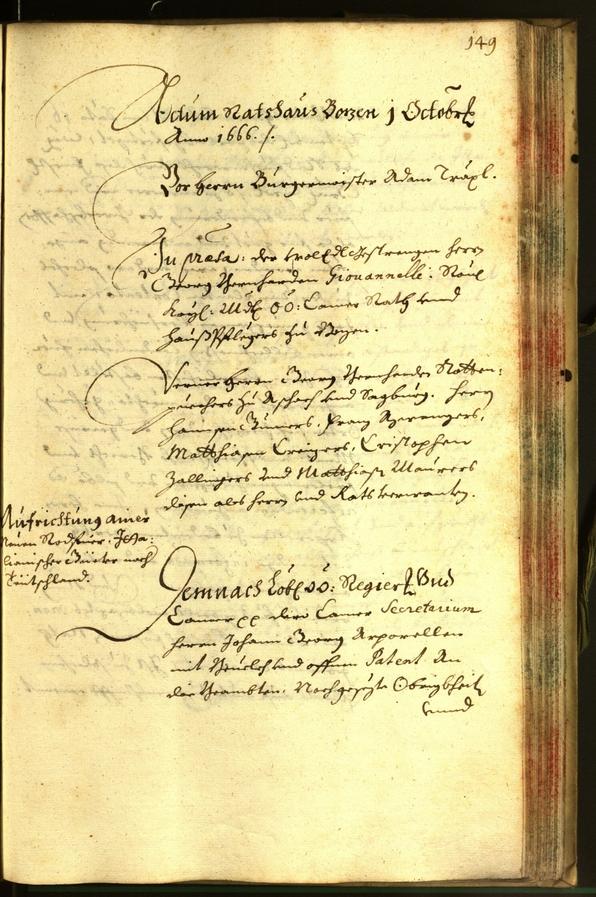 149
Actum Ratshaus Bozen j Octobr
Anno 1666. /.
Vor Herrn Burgermaister Adam Träpl.
In präsa: der woledlgestrengen Herrn
Georg Bernharden Giovannelli: Röm
Kayl: OÖ: Camer Rath und
haußpflegers zu Bozen.
Verner Herrn Georg Bernharden Rotten-
puechers zu Aschach und Sagburg. Herrn
Franz
Matthiasen Creizers, Cristophen
Zallingers und Matthiasen Maurers
disen als herrn und Ratsverwanten.
Aufrichtung ainer
neuen Rodfuer. Ita:
lianischer Güeter nach
Teütschland.
Demnach Lobl OÖ: Regier Und
Camer Camer Secretarium
Herrn Johann Georg
mit und offnen Patent An
die Beambten, Nachgesezte Obrigkheit
unnd